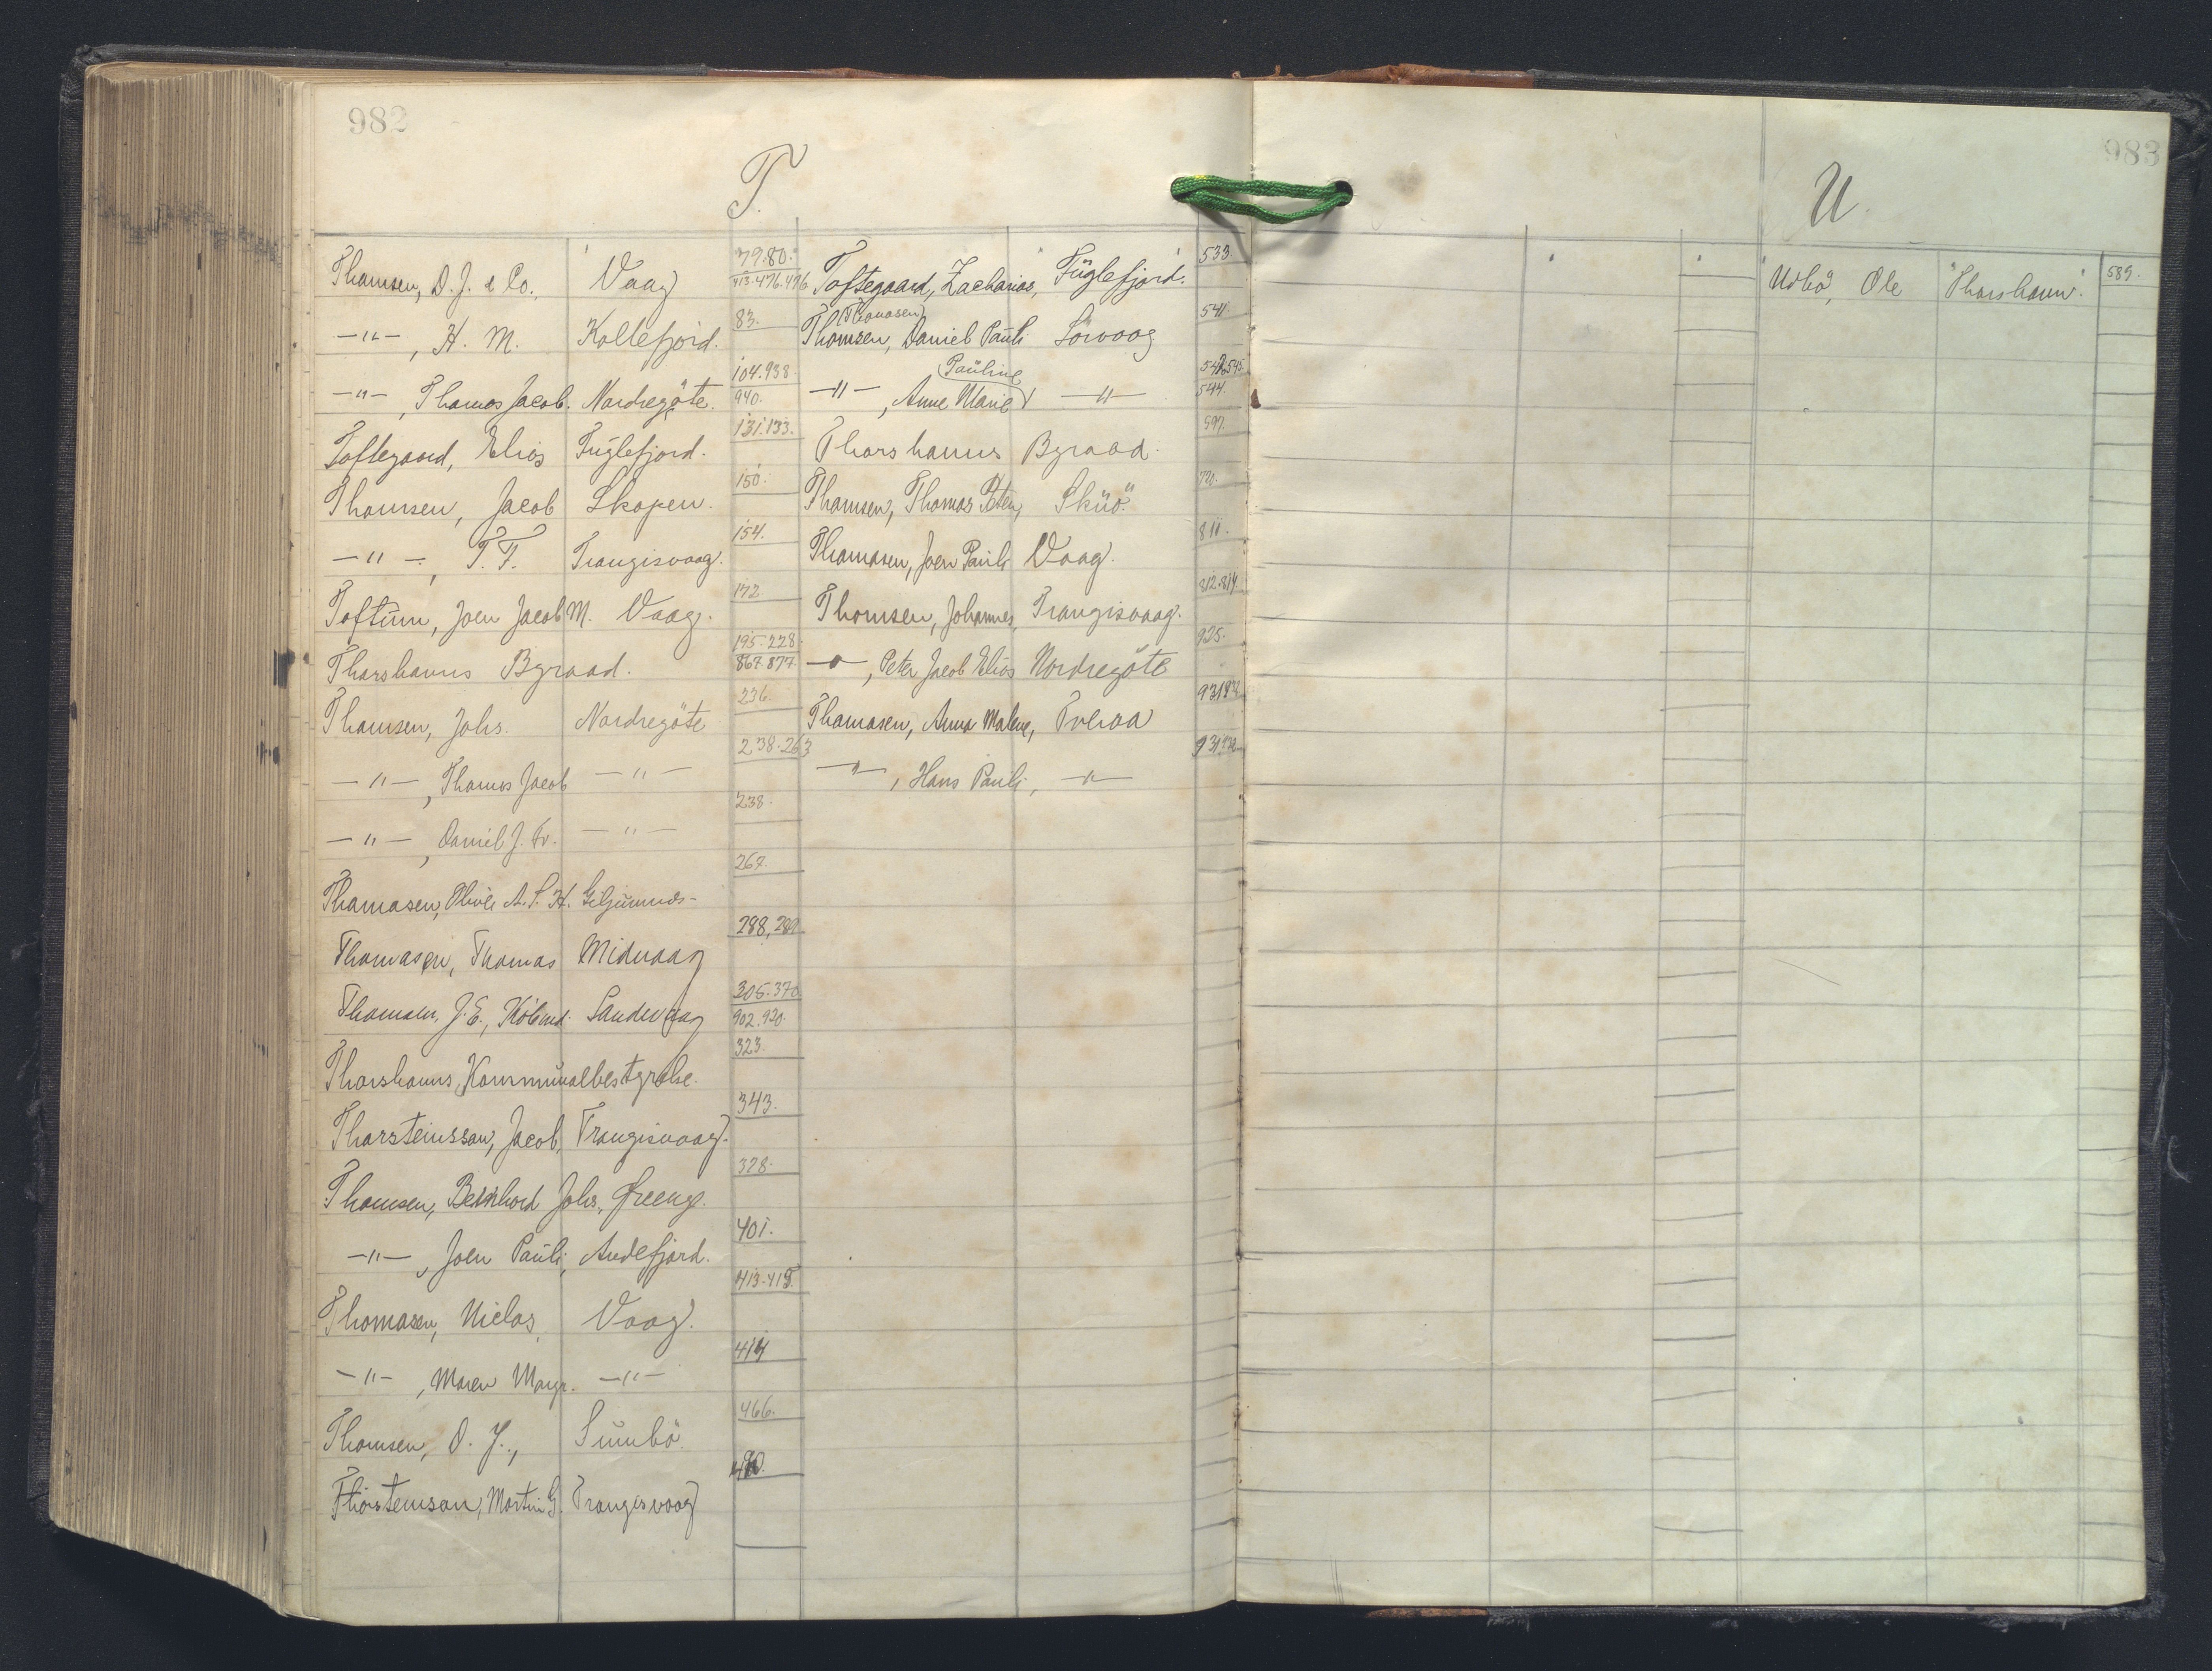 982
T.
Thomsen, D. J. & Co., Vaag 79.80. 413.476.496
-"-, H. M. Kollefjord. 83.
-"-, Thomas Jacob. Nordregöte. 104.938. 940.
Toftegaard, Elias Fuglefjord. 131.133.
Thomsen, Jacob Skopen. 150.
-"-, T. F. Trangisvaag. 154.
Toftum, Joen Jacob M. Vaag. 172
Thorshavns Byraad. 195.228. 867.877
Thomsen, Johs. Nordregöte 236.
-"-, Thomas Jacob -"- 238.263
-"-, Daniel J. Fr. -"- 238.
Thomasen, A. S. H. 267.
Thomasen, Thomas Midvaag 288, 289
Thomsen, J. E., Köbmd. Sandevaag 305.370. 902.920.
Thorshavns Kommunalbestyrelse. 323.
Thorsteinsson, Jacob, Trangisvaag. 343.
Thomsen, Bernhard Johs. 378.
-"-, Joen Pauli, Andefjord. 401.
Thomasen, Niclas, Vaag. 413.415.
-"-, Maren Margr. -"- 414
Thomsen, D. J., Sumbö. 466.
Thorsteinson, Martin G. Trangisvaag 490.
Toftegaard, Zacharias, Fuglefjord. 533.
(Thomasen)
Thomsen, Daniel Pauli Sörvaag 541.
Pauline
-"-, Anne Marie -"- 544.
Thorshavns Byraad. 597.
Thomsen, Thomas Peter, Skuö. 720.
Thomasen, Joen Pauli Vaag. 811.
Thomsen, Johannes, Trangisvaag. 812.814
-"-, Peter Jacob Elias Nordregöte 925.
Thomasen, Anna Malene, Tveraa 931.932
-"-, Hans Pauli, -"- 931.932
983
U.
Udbö, Ole Thorshavn. 589.